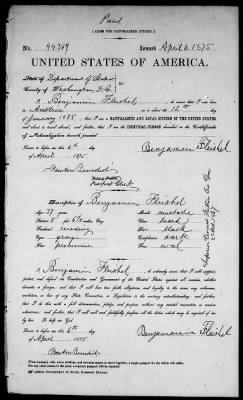 Paid
[FORM FOR NATURALIZED CITIZEN.]
No. 44309 Issued April 6, 1895
UNITED STATES OF AMERICA.
State of Department of State
County of Washington, D.C.
I, Benjamin Fleishel, do swear that I was born
in Austria on or about the 12th day
of January 1858 that I am a NATURALIZED AND LOYAL CITIZEN OF THE UNITED STATES,
and about to travel abroad; and further, that I am the IDENTICAL PERSON described in the Certificate
of Naturalization herewith presented.
Sworn to before me this 6th day
of April 1895
Benjamin Fleishel
Newton Benedict
Passport Clerk
Description of Benjamin Fleishel
Age: 37 years Mouth: mustache
Stature: 5 feet Chin: beard
Forehead: receding Hair: black
Eyes: gray Complexion: dark
Nose: Face: oval
I, Benjamin Fleishel, do solemnly swear that I will support,
protect, and defend the Constitution and Government of the United States against all enemies, whether
domestic or foreign, and that I will bear true faith, allegiance, and loyalty to the same, any ordinance,
resolution, or law of any State, Convention, or Legislature to the contrary notwithstanding; and further,
that I do this with a full determination, pledge, and purpose, without any mental reservation or evasion
whatsoever; and further, that I will well and faithfully perform all the duties which may be required of me
by law: So help me God.
Sworn to before me this 6th day
of April 1895
Benjamin Fleishel
Newton Benedict